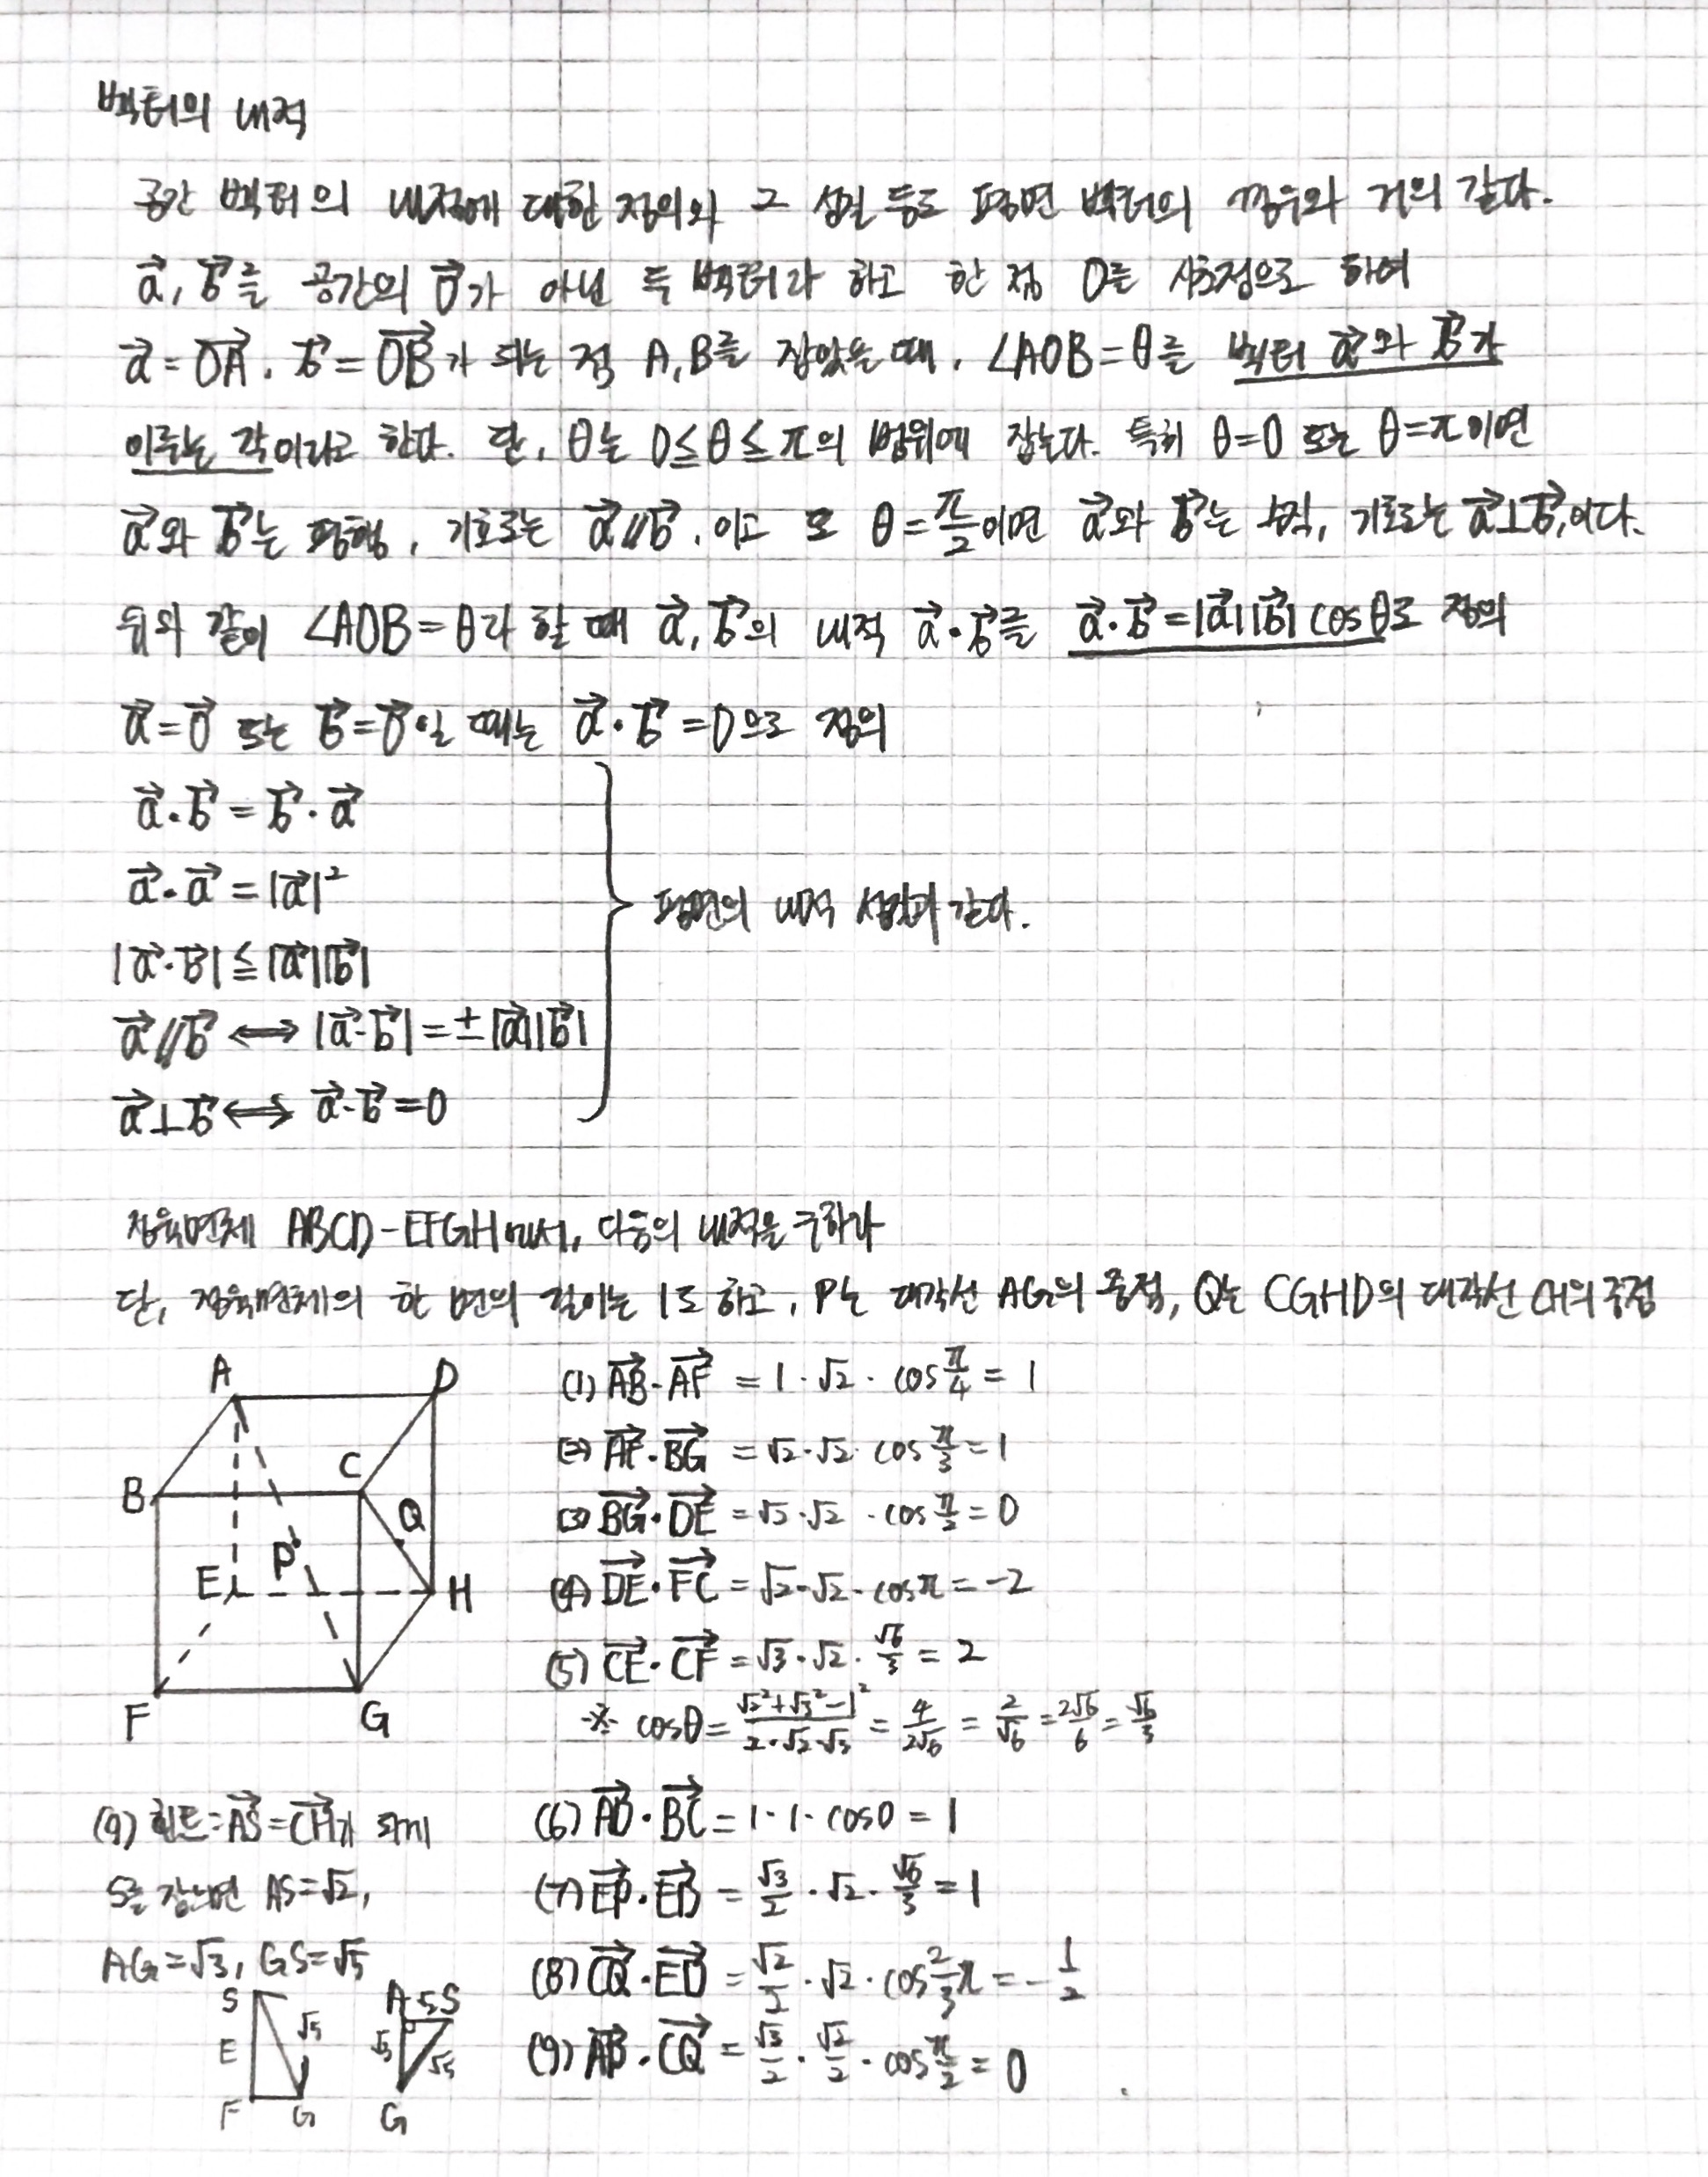 벡터의 내적
공간 벡터의 내적에 대한 정의와 그 성질 등도 평면 벡터의 경우와 거의 같다.
a⃗, b⃗를 공간의 0⃗가 아닌 두 벡터라 하고 한 점 O를 시초점으로 하여
a⃗ = OA⃗, b⃗ = OB⃗가 되는 점 A, B를 잡았을 때, ∠AOB = θ를 벡터 a⃗와 b⃗가
이루는 각이라고 한다. 단, θ는 0 ≤ θ ≤ π의 범위에 잡는다. 특히 θ=0 또는 θ=π이면
a⃗와 b⃗는 평행, 기호로는 a⃗∥b⃗, 이고 또 θ = π/2이면 a⃗와 b⃗는 수직, 기호로는 a⃗⊥b⃗,이다.
위와 같이 ∠AOB = θ라 할 때 a⃗, b⃗의 내적 a⃗·b⃗를 a⃗·b⃗ = |a⃗||b⃗| cosθ로 정의
a⃗ = 0⃗ 또는 b⃗ = 0⃗일 때는 a⃗·b⃗ = 0으로 정의
a⃗·b⃗ = b⃗·a⃗
a⃗·a⃗ = |a⃗|²
|a⃗·b⃗| ≦ |a⃗||b⃗|
a⃗∥b⃗ ⟺ |a⃗·b⃗| = ±|a⃗||b⃗|
a⃗⊥b⃗ ⟺ a⃗·b⃗ = 0
평면의 내적 성질과 같다.
정육면체 ABCD-EFGH에서, 다음의 내적을 구하라
단, 정육면체의 한 변의 길이는 1로 하고, P는 대각선 AG의 중점, Q는 CGHD의 대각선 CH의 중점
A D
B C
Q
P
E H
F G
(1) AB⃗·AF⃗ = 1·√2·cos π/4 = 1
(2) AF⃗·BG⃗ = √2·√2·cos π/3 = 1
(3) BG⃗·DE⃗ = √2·√2·cos π/2 = 0
(4) DE⃗·FC⃗ = √2·√2·cosπ = -2
(5) CE⃗·CF⃗ = √3·√2·√6/3 = 2
※ cosθ = (√2²+√3²-1²)/(2·√2·√3) = 4/2√6 = 2/√6 = 2√6/6 = √6/3
(6) AD⃗·BC⃗ = 1·1·cos0 = 1
(7) EP⃗·EB⃗ = √3/2·√2·√6/3 = 1
(8) CQ⃗·ED⃗ = √2/2·√2·cos 2/3 π = -1/2
(9) AP⃗·CQ⃗ = √3/2·√2/2·cos π/2 = 0
(9) 힌트: AS⃗ = CH⃗가 되게
S를 잡으면 AS = √2,
AG = √3, GS = √5
S
E √5
F G
A √2 S
√3 √5
G